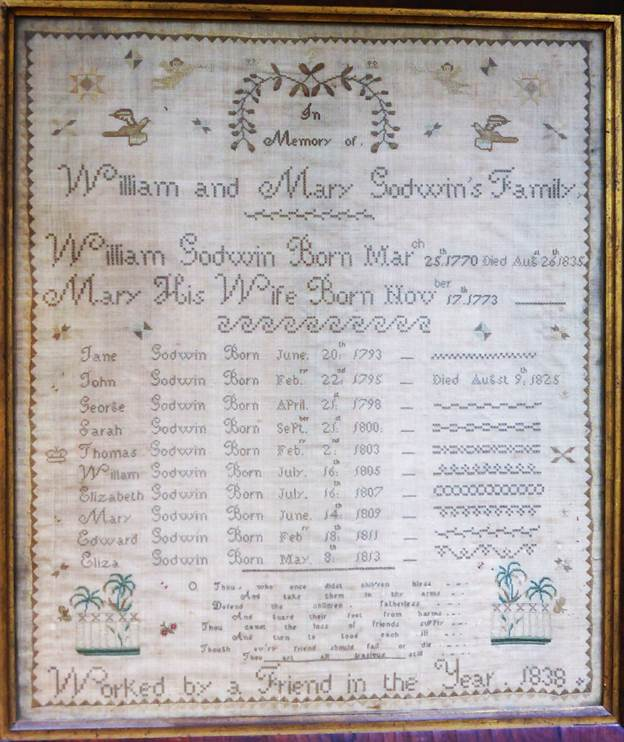 In
Memory of.
William and Mary Godwin's Family.
William Godwin Born March 25th 1770 Died Augst 26th 1835
Mary His Wife Born Novber 17th 1773
Jane Godwin Born June. 20th 1793 —
John Godwin Born Febry 22nd 1795 — Died Augst 9th 1825
George Godwin Born April. 21st 1798 —
Sarah Godwin Born Septber 21st 1800. —
Thomas Godwin Born Febry 2nd 1803 —
William Godwin Born July. 16th 1805 —
Elizabeth Godwin Born July. 16th 1807 —
Mary Godwin Born June. 14th 1809 —
Edward Godwin Born Febry 18th 1811 —
Eliza Godwin Born May. 8th 1813 —
O Thou who once didst children bless
And take them in thy arms
Defend the children fatherless
And guard their feet from harms
Thou canst the loss of friends supply
And turn to good each ill
Though ev'ry friend should fail or die
Thou art all gracious still
Worked by a Friend in the Year. 1838